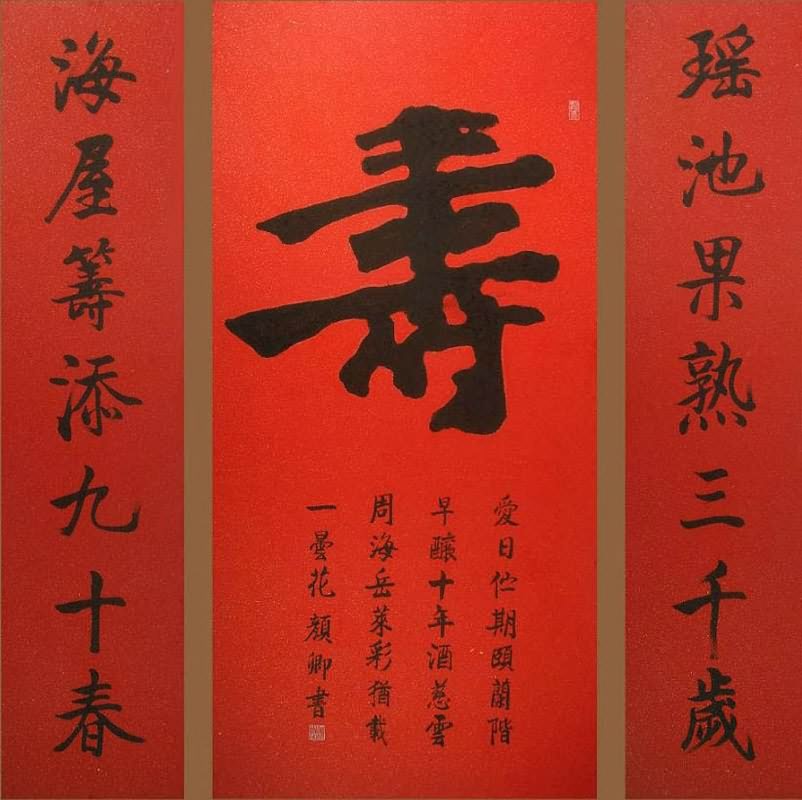 瑶池果熟三千歲
壽
愛日伫期頤蘭階
早釀十年酒慈雲
周海岳萊彩猶載
一曇花 顏卿書
海屋籌添九十春